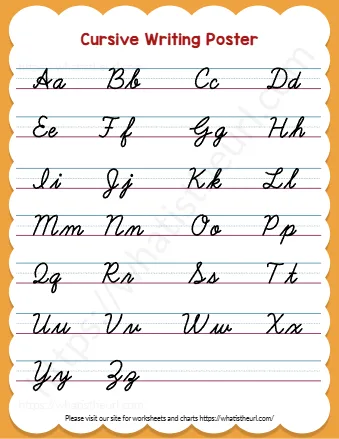 Cursive Writing Poster
Aa Bb Cc Dd
Ee Ff Gg Hh
Ii Jj Kk Ll
Mm Nn Oo Pp
Qq Rr Ss Tt
Uu Vv Ww Xx
Yy Zz
https://whatistheurl.com/
Please visit our site for worksheets and charts https://whatistheurl.com/